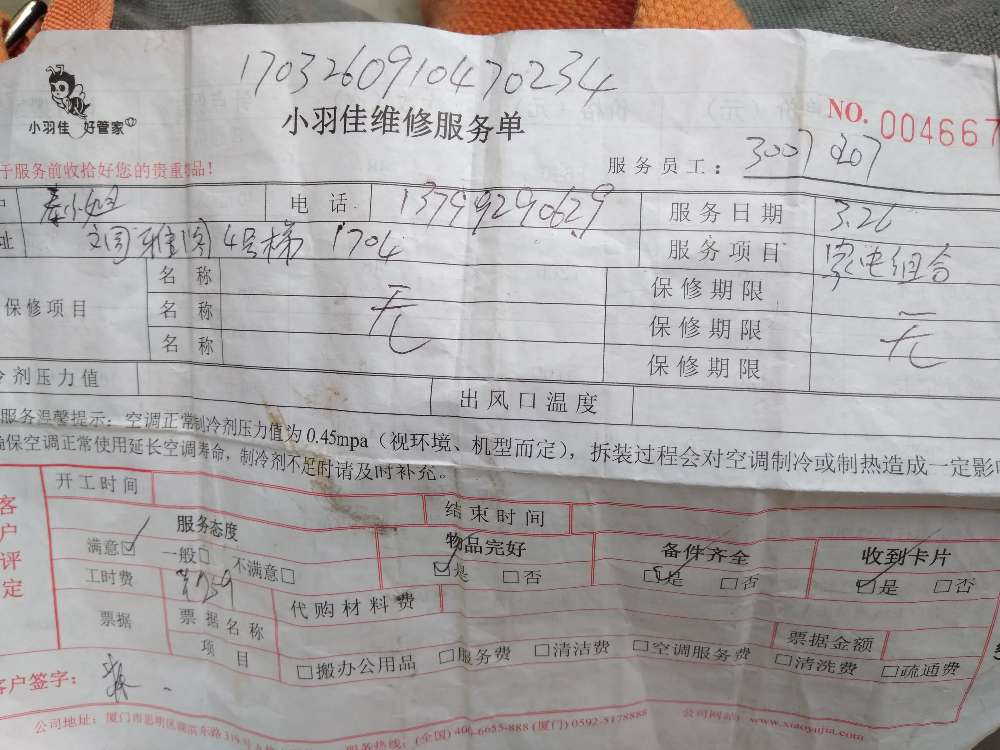 1703260910470234
小羽佳 好管家
小羽佳维修服务单
NO. 004667
于服务前收拾好您的贵重物品!
服务员工: 3007
电话 13799290629 服务日期 3.26
址 文园雅阁4号梯 1704 服务项目 家电组合
保修项目 名称 无 保修期限 无
名称 保修期限
名称 保修期限
冷剂压力值 出风口温度
服务温馨提示:空调正常制冷剂压力值为0.45mpa(视环境、机型而定),拆装过程会对空调制冷或制热造成一定影响
确保空调正常使用延长空调寿命,制冷剂不足时请及时补充。
客户评定
开工时间 结束时间
服务态度 物品完好 备件齐全 收到卡片
满意☑ 一般□ 不满意□ ☑是 □否 ☑是 □否 ☑是 □否
工时费 代购材料费
票据 票据名称 票据金额
项目 □搬办公用品 □服务费 □清洁费 □空调服务费 □清洗费 □疏通费
客户签字:
公司地址:厦门市思明区 服务热线:(全国)400-6655-888 (厦门) 0592-5178888 公司网站: www.xiaoyujia.com